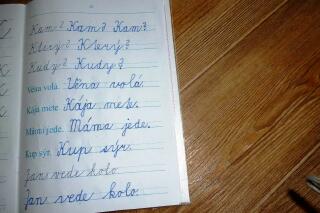 Kam? Kam? Kam?
Který? Který?
Kudy? Kudy?
Věra volá. Věra volá.
Kája mete. Kája mete.
Máma jede. Máma jede.
Kup sýr. Kup sýr.
Jan vede kolo.
Jan vede kolo.